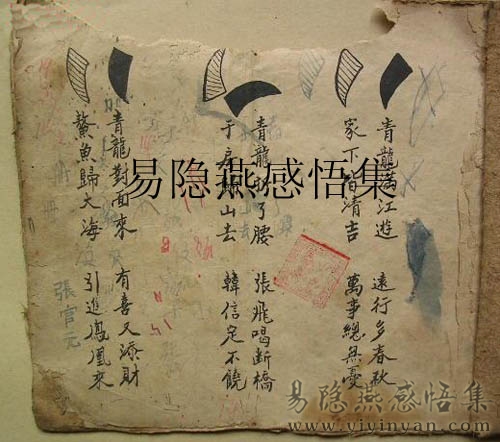 青龍滿江遊 遠行多春秋
家下皆清吉 萬事總無憂
青龍 了腰 張飛喝断橋
房 山去 韓信定不饒
青龍對面來 有喜又添財
鰲魚歸大海 引進鳳凰來
張官元
易隐燕感悟集
易隐燕感悟集
www.yiyinyan.com